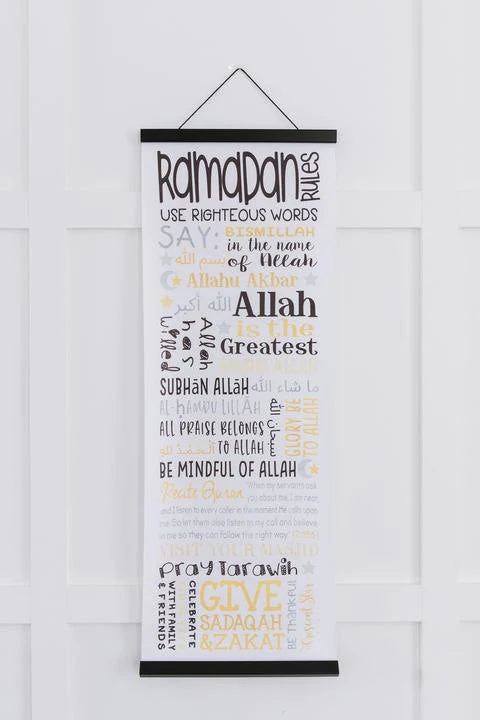 RAMADAN RULES
USE RIGHTEOUS WORDS
SAY: BISMILLAH
in the name
بسم الله of Allah
Allahu Akbar
الله أكبر Allah
is the
Greatest
Allah has willed
SUBHāN ALLāH ما شاء الله
AL-HAMDU LILLĀH
سبحان الله
GLORY BE TO ALLAH
ALL PRAISE BELONGS
الحمد لله TO ALLAH
BE MINDFUL OF ALLAH
Recite Quran "When my servants ask
you about me, I am near,
and I listen to every caller in the moment he calls upon
me. So let them also listen to my call and believe
in me so they can follow the right way." (2:186)
VISIT YOUR MASJID
pray Tarawih
WITH FAMILY & FRIENDS
CELEBRATE
GIVE
SADAQAH
&ZAKAT
BE THANKFUL
Crescent Star